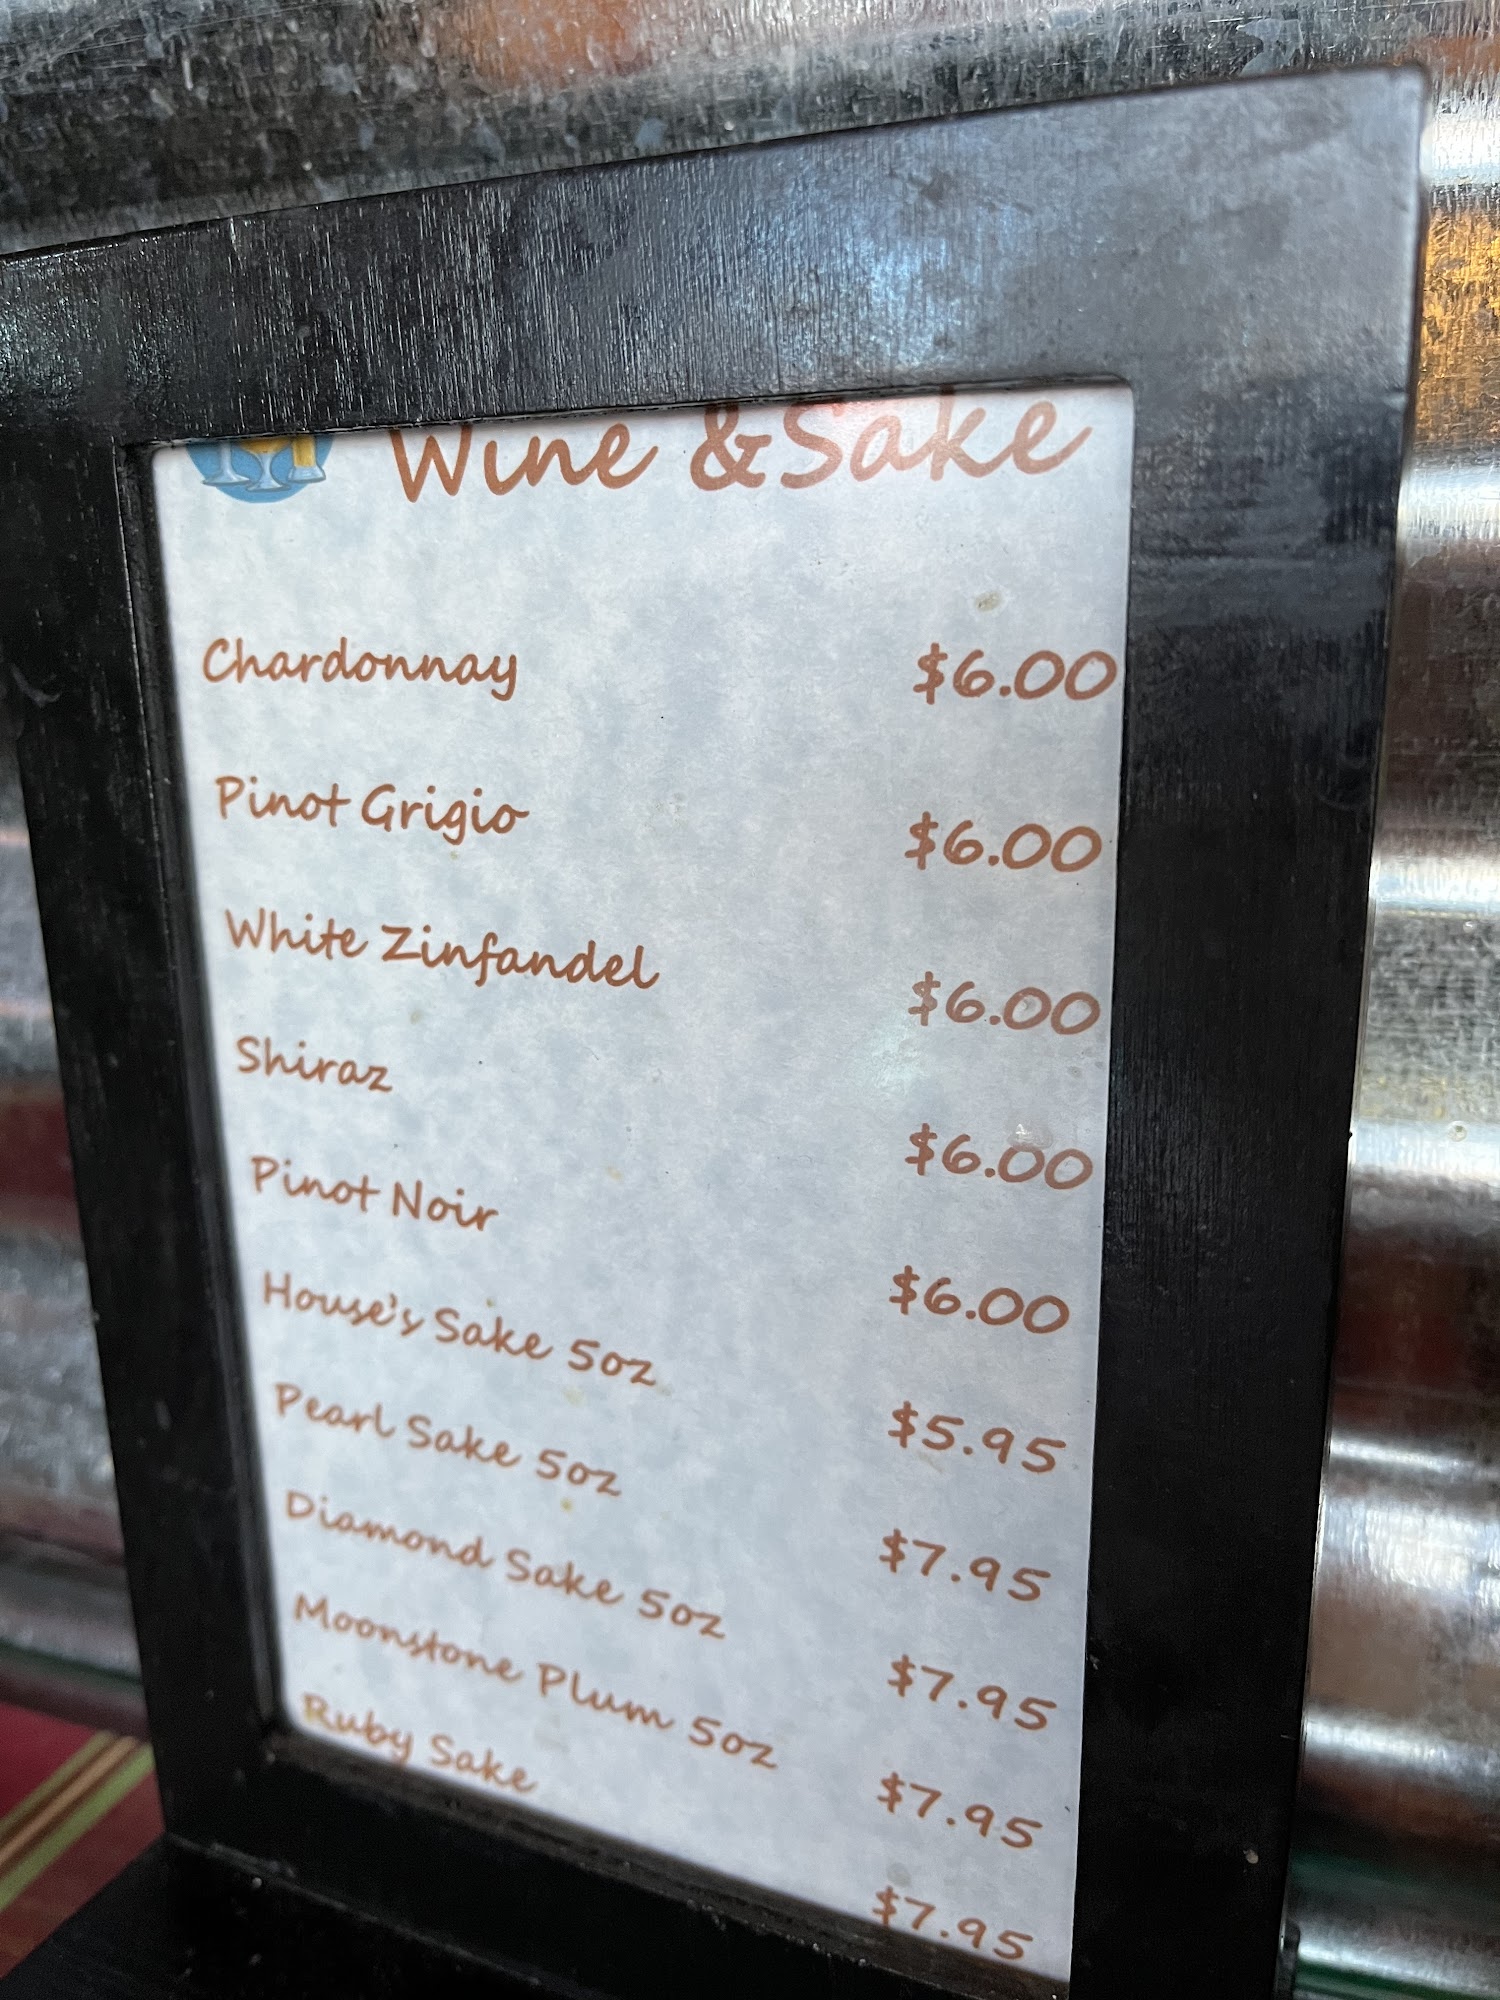 Wine & Sake
Chardonnay $6.00
Pinot Grigio $6.00
White Zinfandel $6.00
Shiraz $6.00
Pinot Noir $6.00
House's Sake 5oz $5.95
Pearl Sake 5oz $7.95
Diamond Sake 5oz $7.95
Moonstone Plum 5oz $7.95
Ruby Sake $7.95